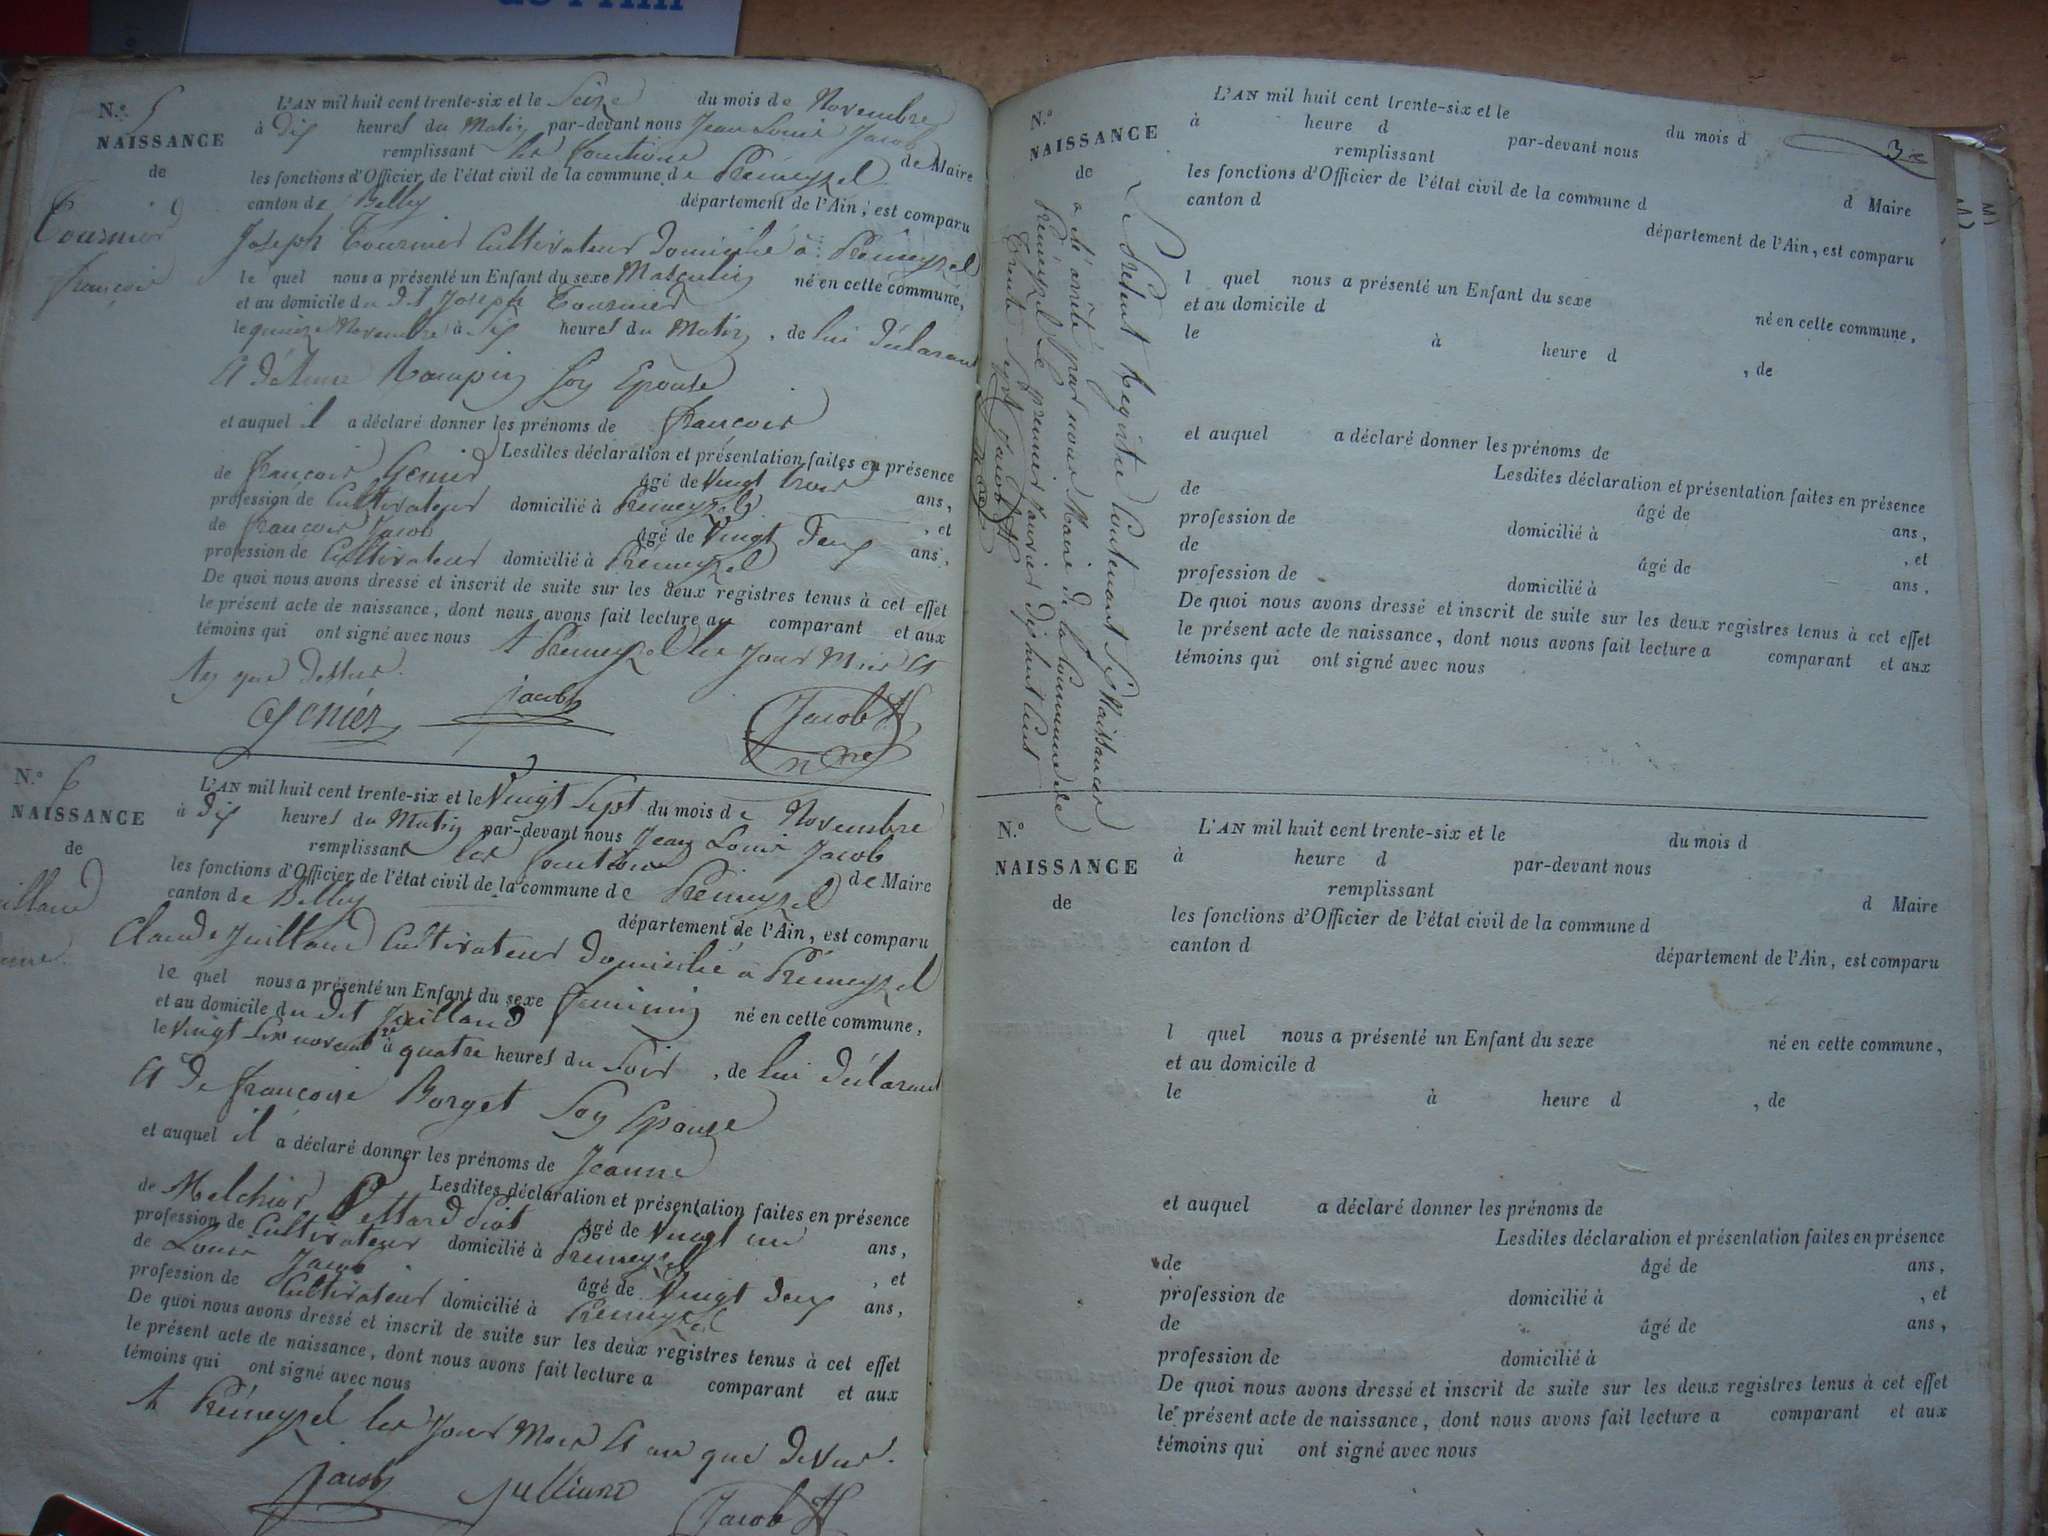 N.° 5
NAISSANCE
de
Tournier
françois
L'AN mil huit cent trente-six et le Seize du mois de Novembre
à Dix heures du Matin par-devant nous Jean Louis Jacob
remplissant les fonctions de Maire
les fonctions d'Officier de l'état civil de la commune de Prémeyzel
canton de Belley département de l'Ain, est comparu
Joseph Tournier Cultivateur Domicilié à Prémeyzel
le quel nous a présenté un Enfant du sexe Masculin né en cette commune,
et au domicile du dit Joseph Tournier
le quinze Novembre à Six heures du Matin, de lui déclarant
Et d'Anne Son Epouse
et auquel il a déclaré donner les prénoms de françois
Lesdites déclaration et présentation faites en présence
de françois Genier âgé de Vingt trois ans,
profession de Cultivateur domicilié à Prémeyzel, et
de françois Jacob âgé de Vingt Deux ans,
profession de Cultivateur domicilié à Prémeyzel
De quoi nous avons dressé et inscrit de suite sur les deux registres tenus à cet effet
le présent acte de naissance, dont nous avons fait lecture au comparant et aux
témoins qui ont signé avec nous A Prémeyzel les Jour Mois Et
An que dessus.
Genier Jacob Jacob
N.° 6
NAISSANCE
de
L'AN mil huit cent trente-six et le Vingt Sept du mois de Novembre
à Dix heures du Matin par-devant nous Jean Louis Jacob
remplissant les fonctions de Maire
les fonctions d'Officier de l'état civil de la commune de Prémeyzel
canton de Belley département de l'Ain, est comparu
Claude Juilland Cultivateur Domicilié à Prémeyzel
le quel nous a présenté un Enfant du sexe féminin né en cette commune,
et au domicile du dit Juilland
le Vingt Six novembre à quatre heures du Soir, de lui déclarant
Et De françoise Borget Son Epouse
et auquel il a déclaré donner les prénoms de Jeanne
Lesdites déclaration et présentation faites en présence
de Melchior âgé de Vingt un ans,
profession de Cultivateur domicilié à Prémeyzel, et
de Louis Jacob âgé de Vingt Deux ans,
profession de Cultivateur domicilié à Prémeyzel
De quoi nous avons dressé et inscrit de suite sur les deux registres tenus à cet effet
le présent acte de naissance, dont nous avons fait lecture a comparant et aux
témoins qui ont signé avec nous
A Prémeyzel les Jour Mois Et an que dessus.
Jacob Jacob
3e
Le Présent Registre Contenant Six Naissances
a été arrêté par nous Maire de la Commune de
Prémeyzel Le premier Janvier Dix huit Cent
Trente Sept Jacob
N.°
NAISSANCE
de
L'AN mil huit cent trente-six et le du mois d
à heure d par-devant nous
remplissant d Maire
les fonctions d'Officier de l'état civil de la commune d
canton d département de l'Ain, est comparu
l quel nous a présenté un Enfant du sexe né en cette commune,
et au domicile d
le à heure d , de
et auquel a déclaré donner les prénoms de
Lesdites déclaration et présentation faites en présence
de âgé de ans,
profession de domicilié à , et
de âgé de ans,
profession de domicilié à
De quoi nous avons dressé et inscrit de suite sur les deux registres tenus à cet effet
le présent acte de naissance, dont nous avons fait lecture a comparant et aux
témoins qui ont signé avec nous
N.°
NAISSANCE
de
L'AN mil huit cent trente-six et le du mois d
à heure d par-devant nous
remplissant d Maire
les fonctions d'Officier de l'état civil de la commune d
canton d département de l'Ain, est comparu
l quel nous a présenté un Enfant du sexe né en cette commune,
et au domicile d
le à heure d , de
et auquel a déclaré donner les prénoms de
Lesdites déclaration et présentation faites en présence
de âgé de ans,
profession de domicilié à , et
de âgé de ans,
profession de domicilié à
De quoi nous avons dressé et inscrit de suite sur les deux registres tenus à cet effet
le présent acte de naissance, dont nous avons fait lecture a comparant et aux
témoins qui ont signé avec nous